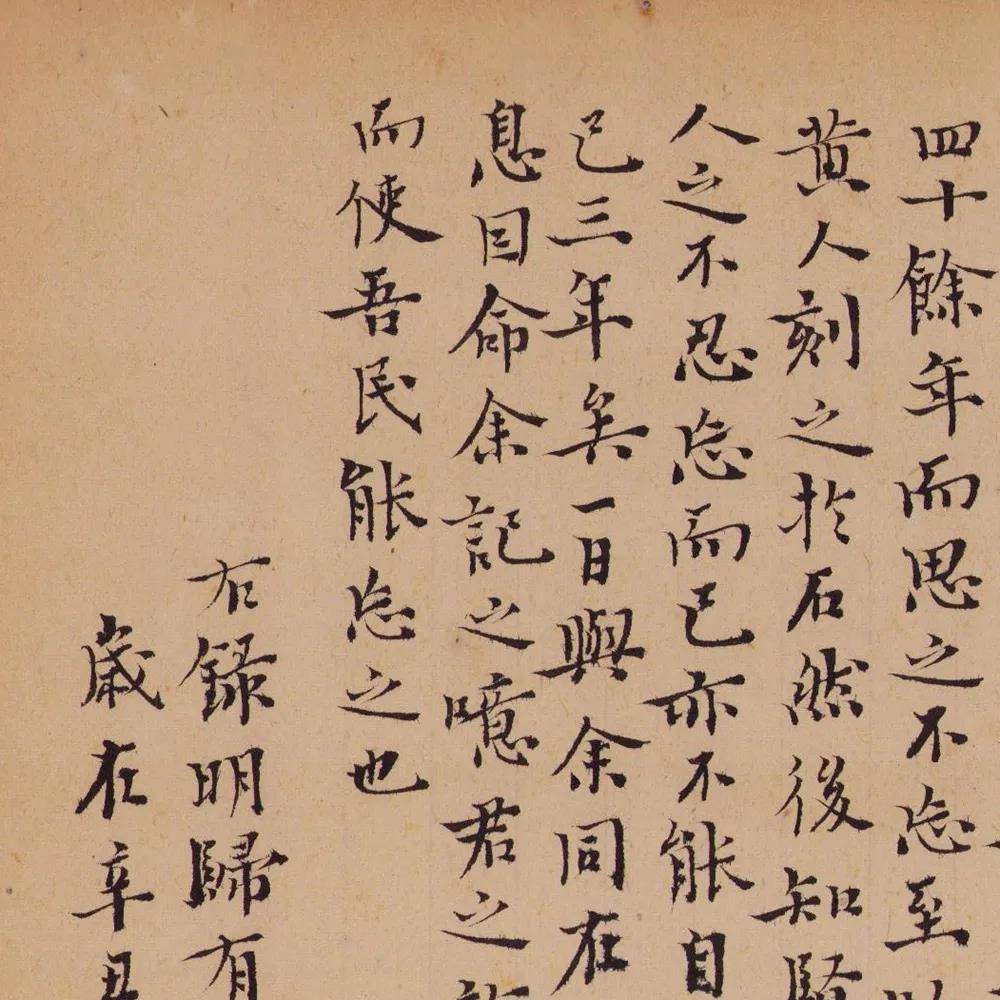 四十餘年而思之不忘至以
黄人刻之於石然後知賢
人之不忍忘而已亦不能自
已三年矣一日與余同在
息因命余記之噫君之
而使吾民能忘之也
右録明歸有
歲在辛丑